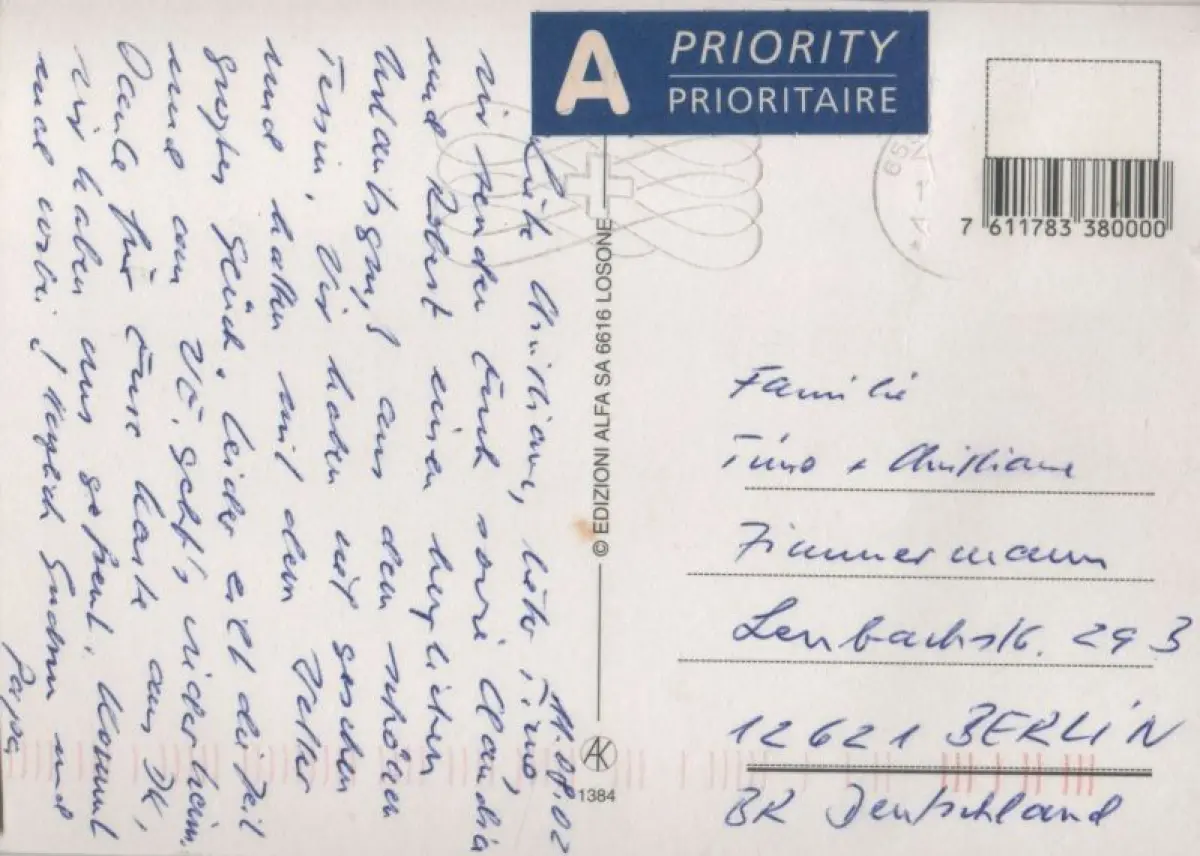 A PRIORITY
PRIORITAIRE
7 611783 380000
© EDIZIONI ALFA SA 6616 LOSONE
AK
1384
11.08.02
Liebe Christiane, lieber Timo,
wir senden Euch sowie Claudia
und Robert einen herzlichen
Urlaubsgruß aus dem schönen
Tessin. Wir haben viel gesehen
und hatten mit dem Wetter
großes Glück. Leider eilt die Zeit
und am geht's wieder heim.
Danke für Eure Karte aus DK,
wir haben uns gefreut. Kommt
mal vorbei! Herzlich Gudrun und
Papa
Familie
Timo + Christiane
Zimmermann
Lenbachstr. 293
12621 BERLIN
BR Deutschland